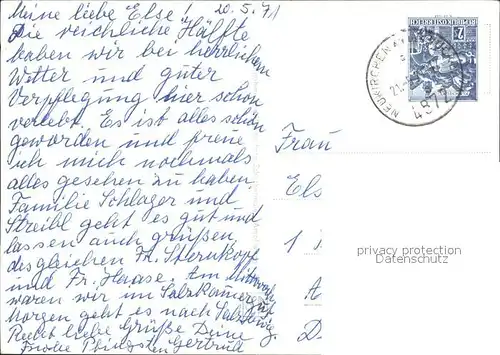 Meine liebe Else! 20.5.71
Die reichliche Hälfte
haben wir bei herrlichem
Wetter und guter
Verpflegung hier schon
verlebt. Es ist alles schön
geworden und freue
ich mich nochmals
alles gesehen zu haben.
Familie Schlager und
Streibl geht es gut und
lassen auch grüßen,
des gleichen Fr. Sternkopf
und Fr. Haase. Am Mittwoch
waren wir im Salzkammergut
Morgen geht es nach Salzburg.
Recht liebe Grüße Deine
Frohe Pfingsten Gertrud
REPUBLIK ÖSTERREICH
2
NEUKIRCHEN
21.
4872
Frau
Els
1
A
D
privacy protection
Datenschutz